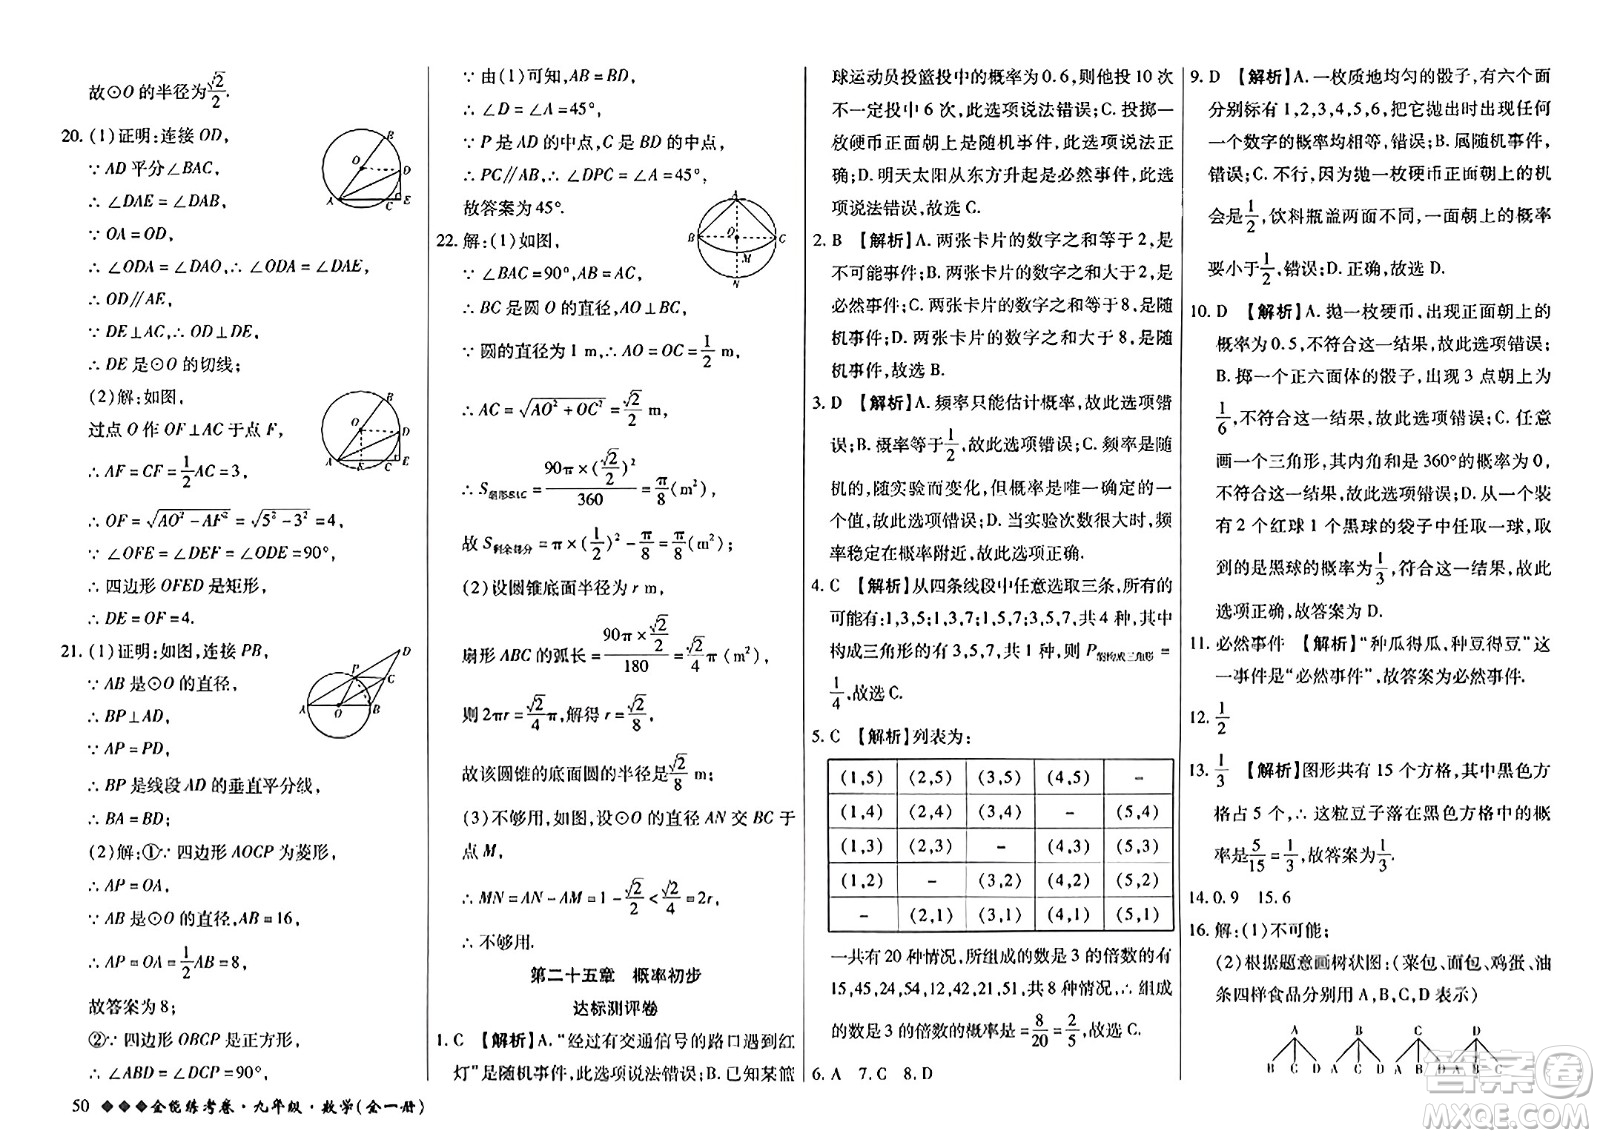 故⊙O 的半径为√2/2.
20. (1)证明:连接 OD,
∵ AD 平分∠BAC,
∴ ∠DAE = ∠DAB,
∵ OA = OD,
∴ ∠ODA = ∠DAO,∴ ∠ODA = ∠DAE,
∴ OD∥AE,
∵ DE⊥AC,∴ OD⊥DE,
∴ DE 是⊙O 的切线;
(2)解:如图,
过点 O 作 OF⊥AC 于点 F,
∴ AF = CF = 1/2 AC = 3,
∴ OF = √(AO² − AF²) = √(5² − 3²) = 4,
∴ ∠OFE = ∠DEF = ∠ODE = 90°,
∴ 四边形 OFED 是矩形,
∴ DE = OF = 4.
21. (1)证明:如图,连接 PB,
∵ AB 是⊙O 的直径,
∴ BP⊥AD,
∵ AP = PD,
∴ BP 是线段 AD 的垂直平分线,
∴ BA = BD;
(2)解:①∵ 四边形 AOCP 为菱形,
∴ AP = OA,
∵ AB 是⊙O 的直径,AB = 16,
∴ AP = OA = 1/2 AB = 8,
故答案为 8;
②∵ 四边形 OBCP 是正方形,
∴ ∠ABD = ∠DCP = 90°,
50 ◆◆◆全能练考卷·九年级·数学(全一册)
∵ 由(1)可知,AB = BD,
∴ ∠D = ∠A = 45°,
∵ P 是 AD 的中点,C 是 BD 的中点,
∴ PC∥AB,∴ ∠DPC = ∠A = 45°,
故答案为 45°.
22. 解:(1)如图,
∵ ∠BAC = 90°,AB = AC,
∴ BC 是圆 O 的直径,AO⊥BC,
∵ 圆的直径为 1 m,∴ AO = OC = 1/2 m,
∴ AC = √(AO² + OC²) = √2/2 m,
∴ S扇形BAC = 90π × (√2/2)² / 360 = π/8 (m²),
故 S剩余部分 = π × (1/2)² − π/8 = π/8 (m²);
(2)设圆锥底面半径为 r m,
扇形 ABC 的弧长 = 90π × √2/2 / 180 = √2/4 π (m²),
则 2πr = √2/4 π,解得 r = √2/8,
故该圆锥的底面圆的半径是√2/8 m;
(3)不够用,如图,设⊙O 的直径 AN 交 BC 于
点 M,
∴ MN = AN − AM = 1 − √2/2 < √2/4 = 2r,
∴ 不够用.
第二十五章 概率初步
达标测评卷
1. C 【解析】A. “经过有交通信号的路口遇到红
灯”是随机事件,此选项说法错误;B. 已知某篮
球运动员投篮投中的概率为 0.6,则他投 10 次
不一定投中 6 次,此选项说法错误;C. 投掷一
枚硬币正面朝上是随机事件,此选项说法正
确;D. 明天太阳从东方升起是必然事件,此选
项说法错误,故选 C.
2. B 【解析】A. 两张卡片的数字之和等于 2,是
不可能事件;B. 两张卡片的数字之和大于 2,是
必然事件;C. 两张卡片的数字之和等于 8,是随
机事件;D. 两张卡片的数字之和大于 8,是随
机事件,故选 B.
3. D 【解析】A. 频率只能估计概率,故此选项错
误;B. 概率等于1/2,故此选项错误;C. 频率是随
机的,随实验而变化,但概率是唯一确定的一
个值,故此选项错误;D. 当实验次数很大时,频
率稳定在概率附近,故此选项正确.
4. C 【解析】从四条线段中任意选取三条,所有的
可能有:1,3,5;1,3,7;1,5,7;3,5,7,共 4 种,其中
构成三角形的有 3,5,7,共 1 种,则 P能构成三角形 =
1/4,故选 C.
5. C 【解析】列表为:
(1,5) (2,5) (3,5) (4,5) –
(1,4) (2,4) (3,4) – (5,4)
(1,3) (2,3) – (4,3) (5,3)
(1,2) – (3,2) (4,2) (5,2)
– (2,1) (3,1) (4,1) (5,1)
一共有 20 种情况,所组成的数是 3 的倍数的有
15,45,24,54,12,42,21,51,共 8 种情况,∴ 组成
的数是 3 的倍数的概率是 = 8/20 = 2/5,故选 C.
6. A 7. C 8. D
9. D 【解析】A. 一枚质地均匀的骰子,有六个面
分别标有 1,2,3,4,5,6,把它抛出时出现任何
一个数字的概率均相等,错误;B. 属随机事件,
错误;C. 不行,因为抛一枚硬币正面朝上的机
会是1/2,饮料瓶盖两面不同,一面朝上的机会
要小于1/2,错误;D. 正确,故选 D.
10. D 【解析】A. 抛一枚硬币,出现正面朝上的
概率为 0.5,不符合这一结果,故此选项错误;
B. 掷一个正六面体的骰子,出现 3 点朝上为
1/6,不符合这一结果,故此选项错误;C. 任意
画一个三角形,其内角和是 360°的概率为 0,
不符合这一结果,故此选项错误;D. 从一个装
有 2 个红球 1 个黑球的袋子中任取一球,取
到的是黑球的概率为1/3,符合这一结果,故此
选项正确,故答案为 D.
11. 必然事件 【解析】“种瓜得瓜,种豆得豆”这
一事件是“必然事件”,故答案为必然事件.
12. 1/2
13. 1/3 【解析】图形共有 15 个方格,其中黑色方
格占 5 个,∴ 这粒豆子落在黑色方格中的概
率是5/15 = 1/3,故答案为1/3.
14. 0.9 15. 6
16. 解:(1)不可能;
(2)根据题意画树状图:(菜包、面包、鸡蛋、油
条四样食品分别用 A,B,C,D 表示)
A B C D
B C D A C D A B D A B C
答案圈
MXQE.COM